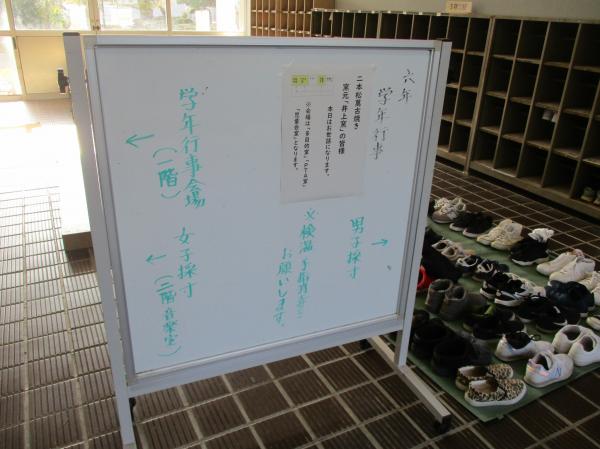 六年
学年行事
二本松萬古焼き
窯元「井上窯」の皆様
本日はお世話になります。
※会場は、「多目的室」「PTA室」
「児童会室」となります。
男子採寸
→
※検温、手指消毒を
お願いします。
学年行事会場
(一階)
←
女子採寸
(二階音楽室)
←